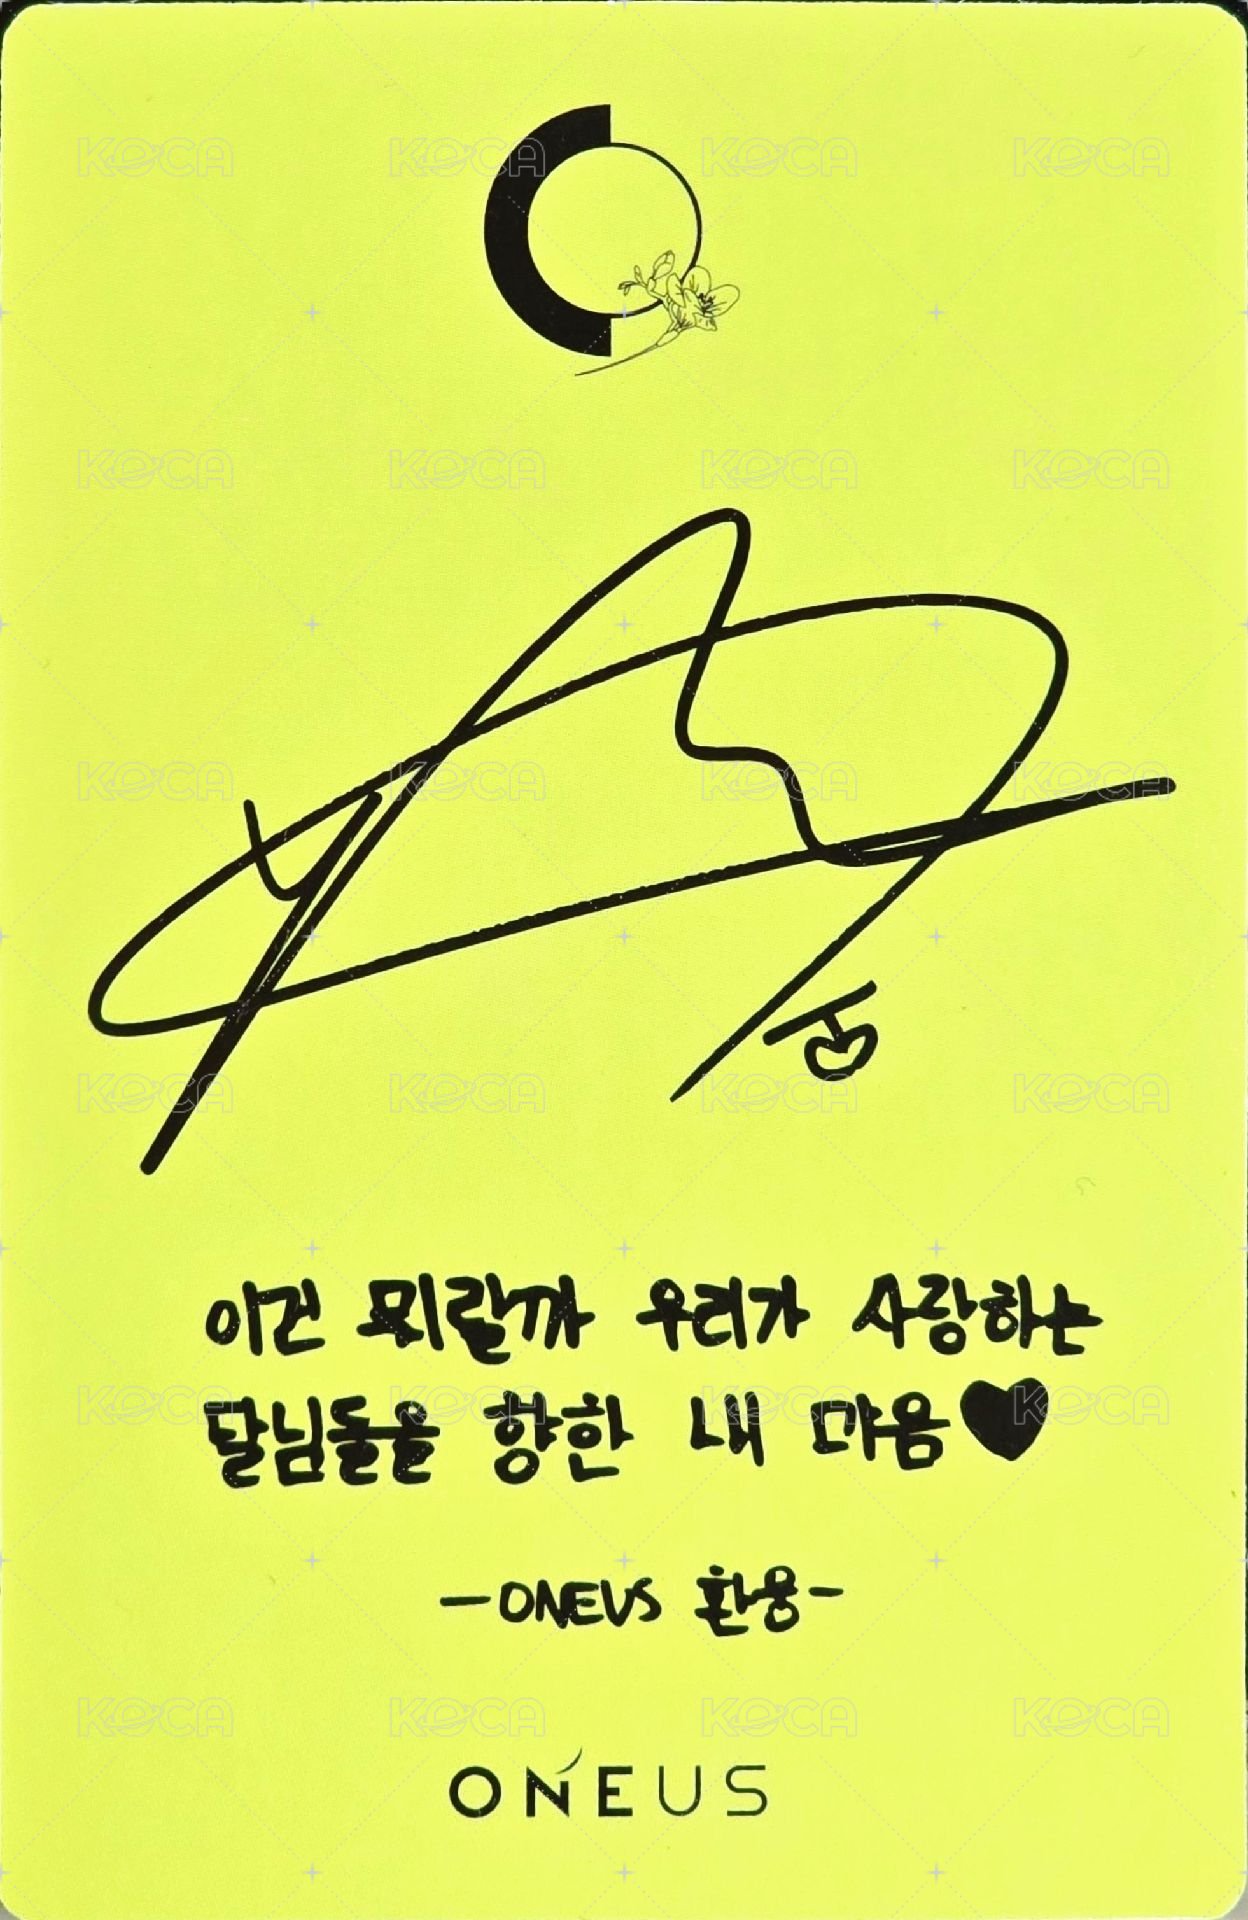 이건 뭐랄까 우리가 사랑하는
달님들을 향한 내 마음♥
-ONEUS 환웅-
ONEUS
KOCA